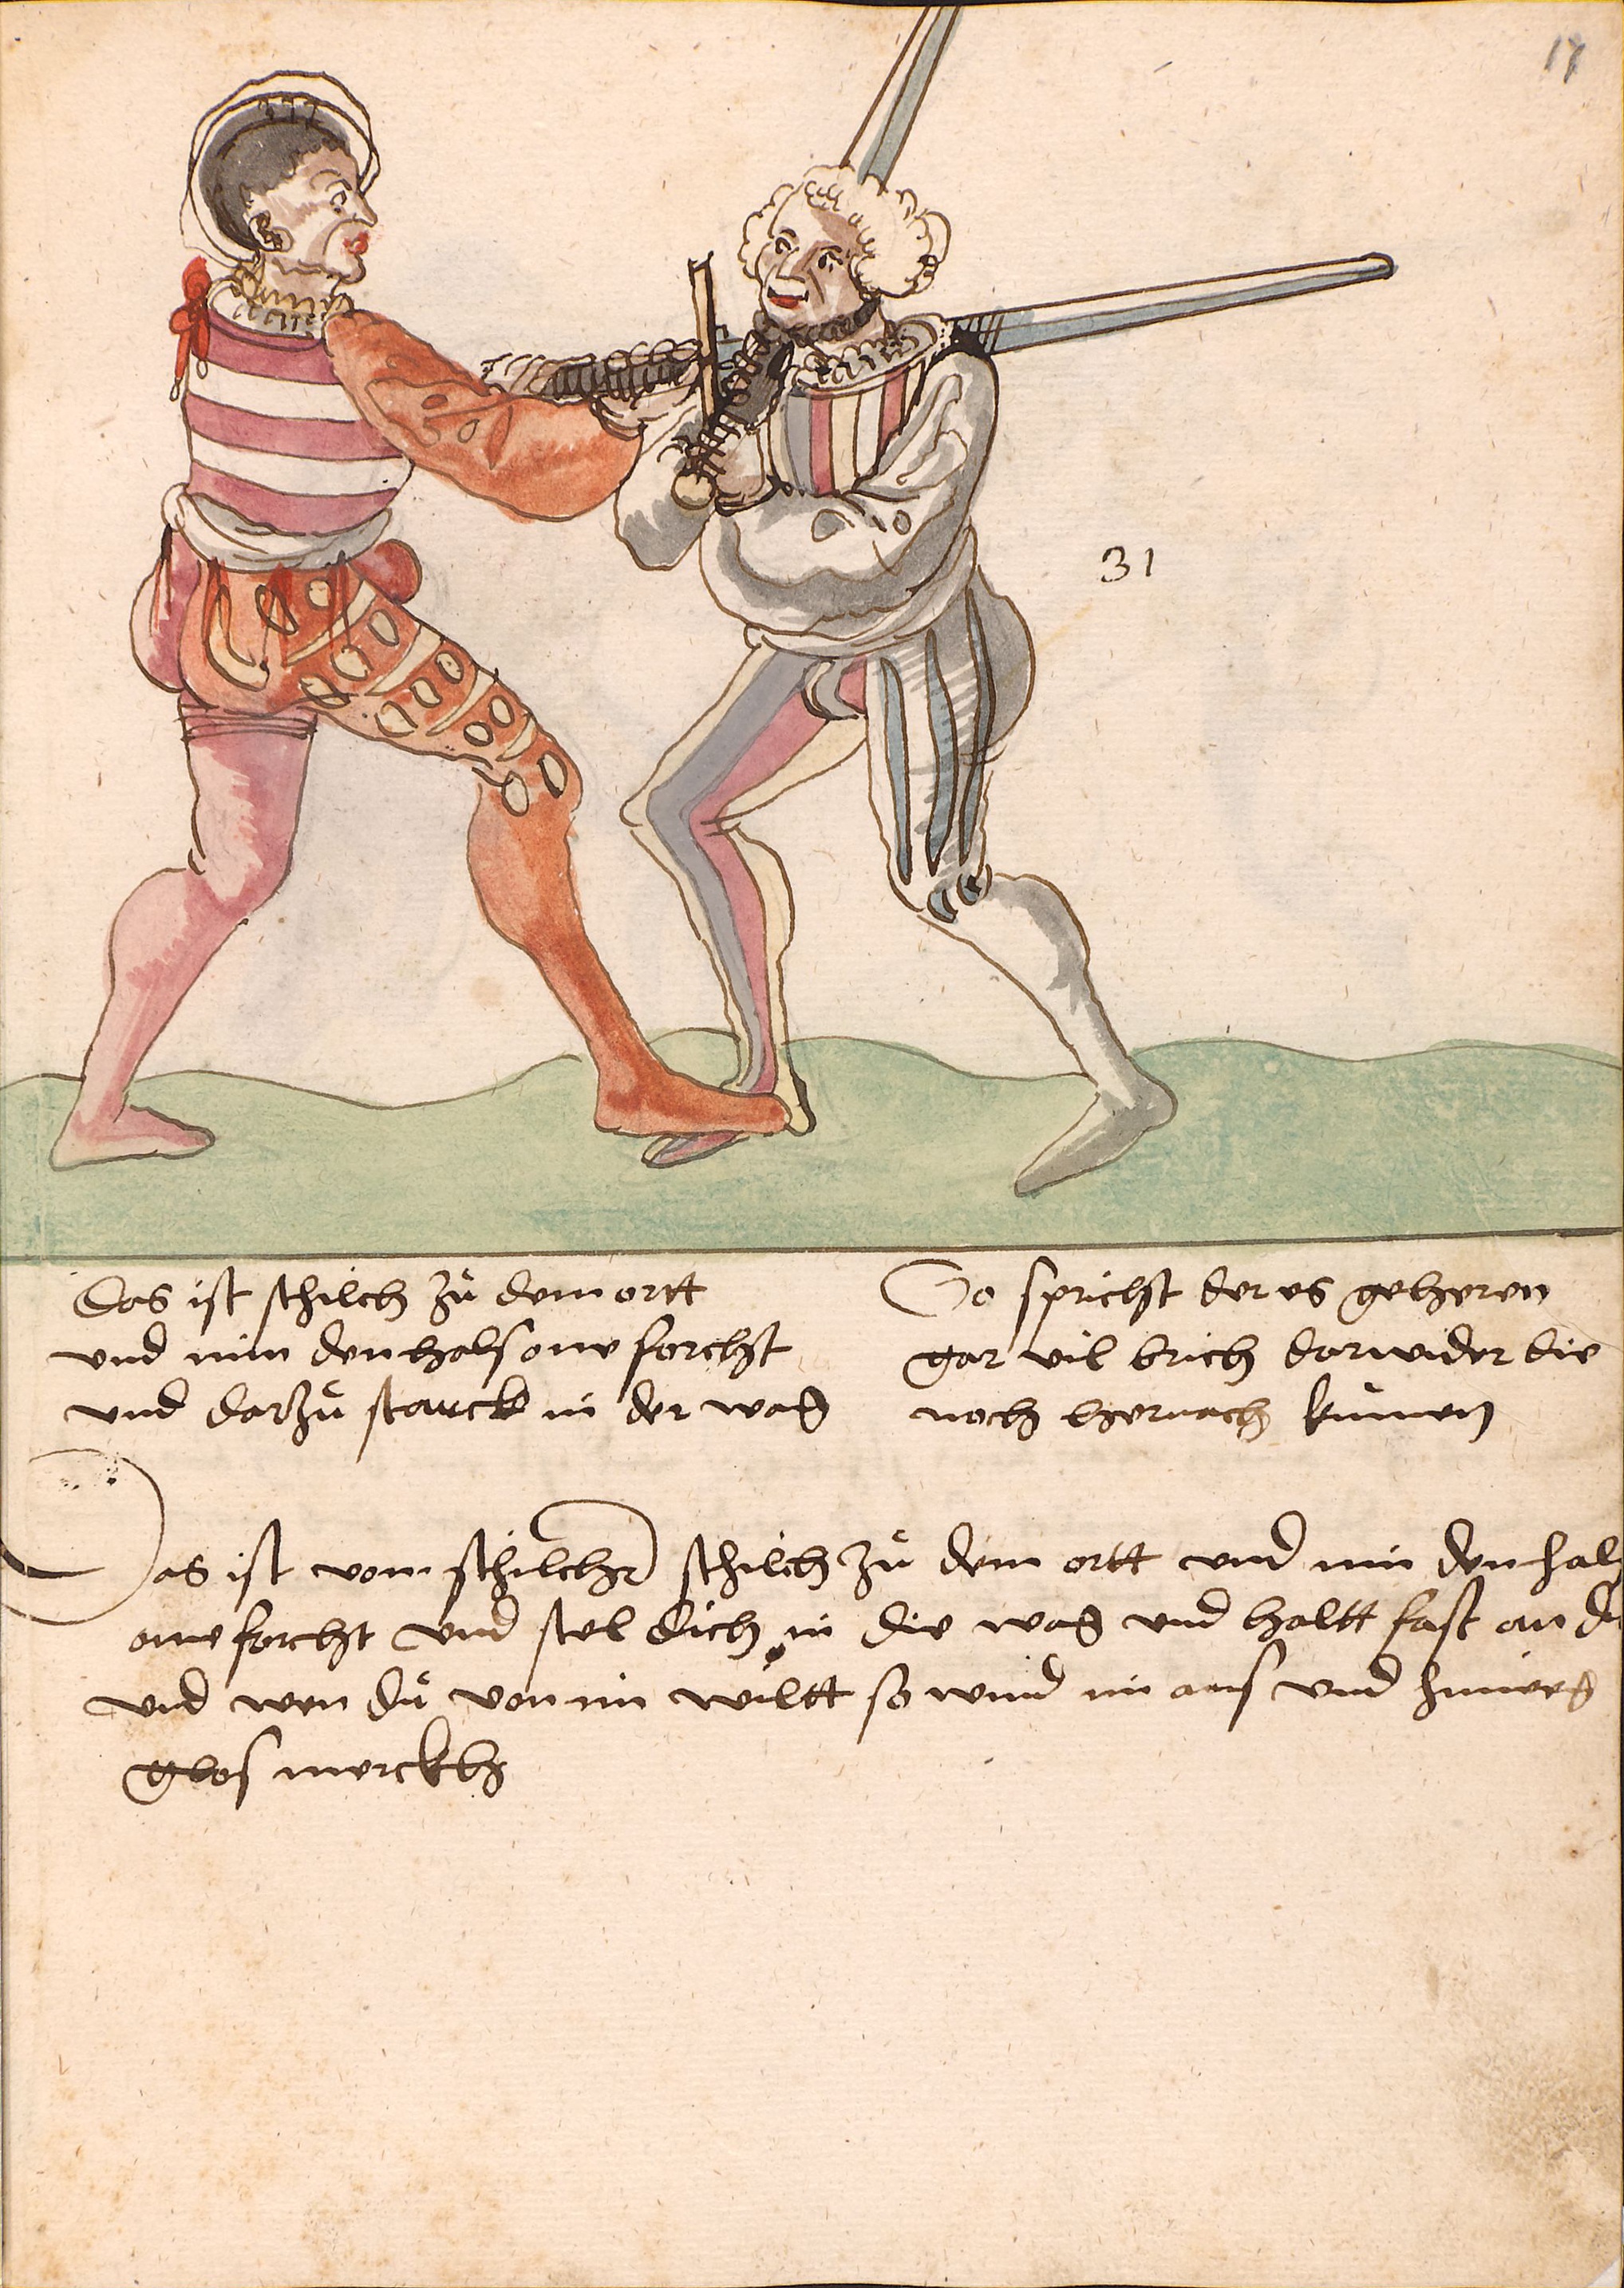 17
31
Das ist schilch zů dem ortt
vnd nim den hals one forcht
vnd darzů starck in der wag
So sprichst der es geheren
gar vil brich darwider die
noch hernach kumen
Das ist vom schilcher schilch zů dem ortt vnd nim den hals
one forcht vnd stel dich in die wag vnd haltt fast an
vnd wen dů von im wiltt so wind im aus vnd hinweg
glos merckh